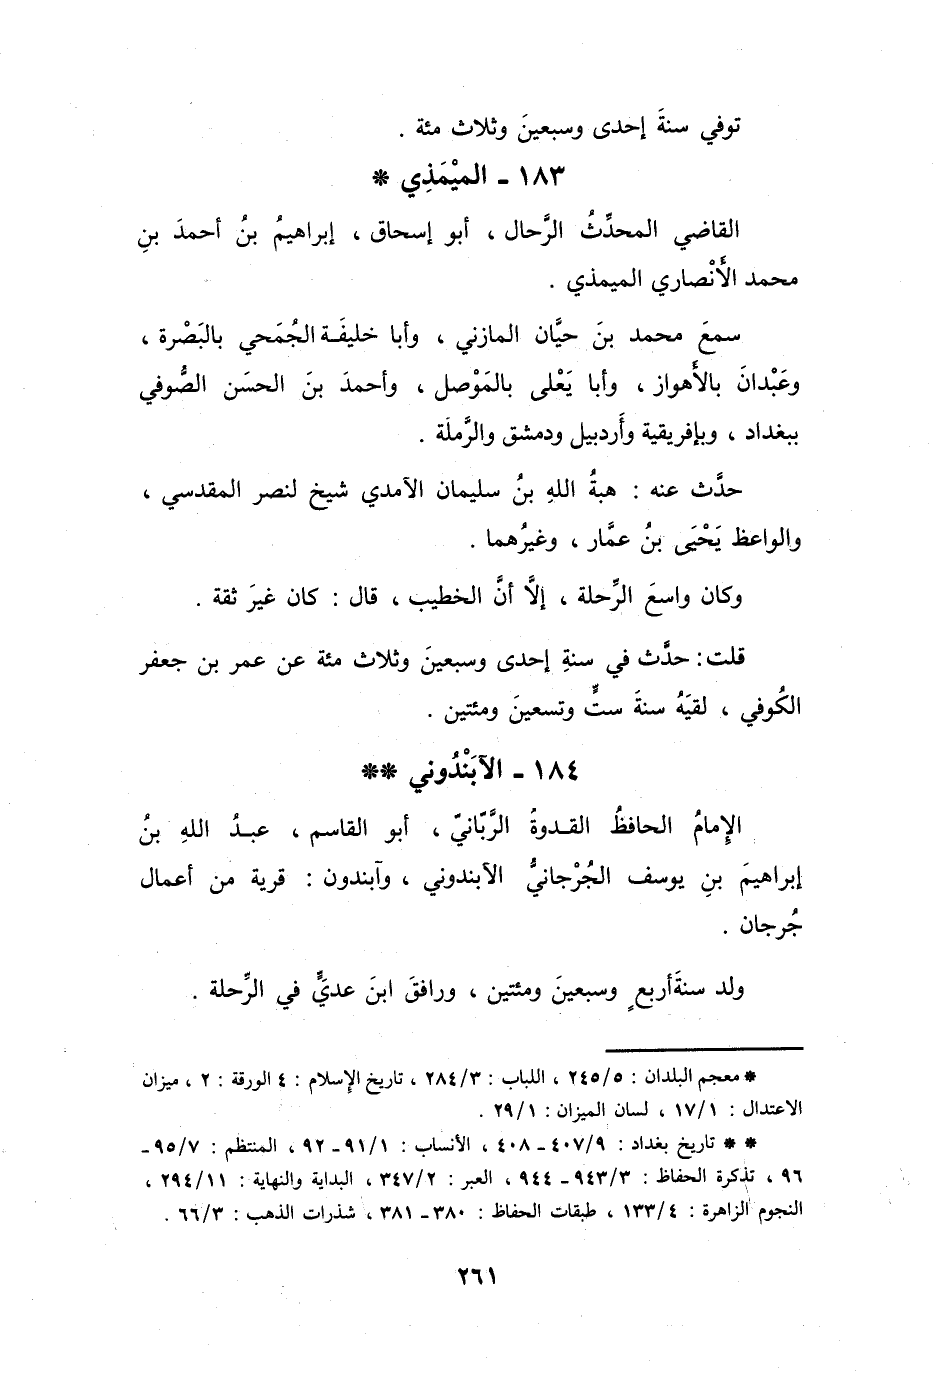 توفي سنةَ إحدى وسبعينَ وثلاث مئة .
١٨٣ ـ الميْمَذِي *
القاضي المحدِّثُ الرَّحال ، أبو إسحاق ، إبراهيمُ بنُ أحمدَ بنِ
محمد الأَنْصاري الميمذي .
سمعَ محمد بنَ حيَّان المازني ، وأبا خليفَة الجُمَحي بالبَصْرة ،
وعَبْدانَ بالأَهواز ، وأبا يَعْلى بالمَوْصل ، وأحمدَ بنَ الحسَن الصُّوفي
ببغداد ، وبإفريقية وأَردبيل ودمشق والرَّملَة .
حدَّث عنه : هبةُ اللهِ بنُ سليمان الآمدي شيخ لنصر المقدسي ،
والواعظ يَحْيَى بنُ عمَّار ، وغيرُهما .
وكان واسعَ الرِّحلة ، إلَّا أنَّ الخطيب ، قال : كان غيرَ ثقة .
قلت : حدَّث في سنةِ إحدى وسبعينَ وثلاث مئة عن عمر بن جعفر
الكُوفي ، لقيَهُ سنةَ ستٍّ وتسعينَ ومئتين .
١٨٤ ـ الآبَنْدُوني **
الإِمامُ الحافظُ القدوةُ الرَّبّانيّ ، أبو القاسم ، عبدُ اللهِ بنُ
إبراهيمَ بنِ يوسف الجُرْجانيُّ الآبندوني ، وآبندون : قرية من أعمال
جُرجان .
ولد سنةَ أربعٍ وسبعينَ ومئتين ، ورافقَ ابنَ عديٍّ في الرِّحلة .
* معجم البلدان : ٢٤٥/٥ ، اللباب : ٢٨٤/٣ ، تاريخ الإسلام : ٤ الورقة : ٢ ، ميزان
الاعتدال : ١٧/١ ، لسان الميزان : ٢٩/١ .
* * تاريخ بغداد : ٤٠٧/٩ ـ ٤٠٨ ، الأنساب : ٩١/١ ـ ٩٢ ، المنتظم : ٩٥/٧ ـ
٩٦ ، تذكرة الحفاظ : ٩٤٣/٣ ـ ٩٤٤ ، العبر : ٣٤٧/٢ ، البداية والنهاية : ٢٩٤/١١ ،
النجوم الزاهرة : ١٣٣/٤ ، طبقات الحفاظ : ٣٨٠ ـ ٣٨١ ، شذرات الذهب : ٦٦/٣ .
٢٦١